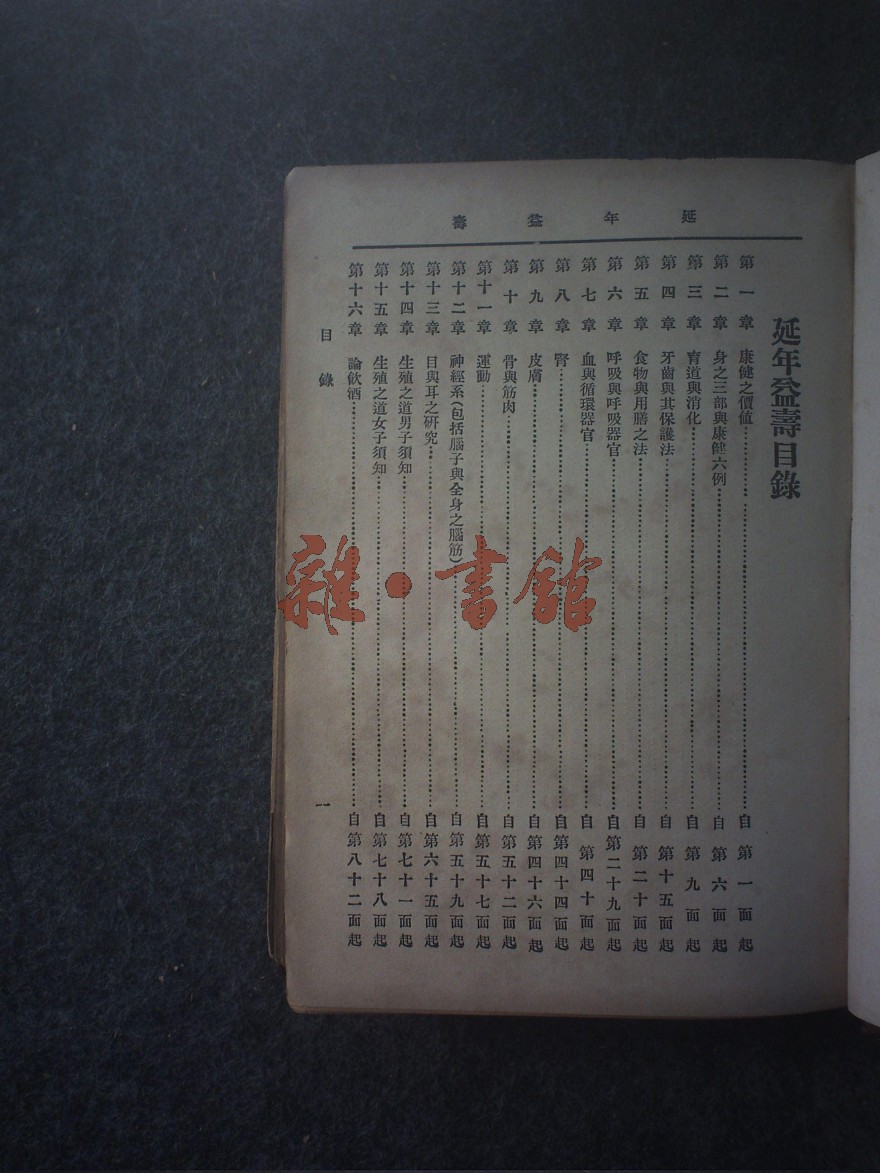 延年益壽
延年益壽目錄
第一章 康健之價値 自第一面起
第二章 身之三部與康健六例 自第六面起
第三章 育道與消化 自第九面起
第四章 牙齒與其保護法 自第十五面起
第五章 食物與用膳之法 自第二十面起
第六章 呼吸與呼吸器官 自第二十九面起
第七章 血與循環器官 自第四十面起
第八章 腎 自第四十四面起
第九章 皮膚 自第四十六面起
第十章 骨與筋肉 自第五十二面起
第十一章 運動 自第五十七面起
第十二章 神經系(包括腦子與全身之腦筋) 自第五十九面起
第十三章 目與耳之硏究 自第六十五面起
第十四章 生殖之道男子須知 自第七十一面起
第十五章 生殖之道女子須知 自第七十八面起
第十六章 論飲酒 自第八十二面起
目錄 一
雜·書館